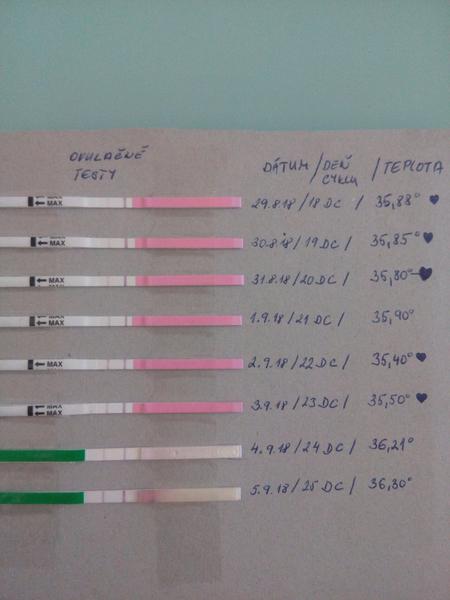 OVULAČNÉ
TESTY
DÁTUM / DEŇ CYKLU / TEPLOTA
MAX 29.8.18 / 18 DC / 35,88° ♥
MAX 30.8.18 / 19 DC / 35,85° ♥
MAX 31.8.18 / 20 DC / 35,80° ♥
MAX 1.9.18 / 21 DC / 35,90°
MAX 2.9.18 / 22 DC / 35,40° ♥
MAX 3.9.18 / 23 DC / 35,50° ♥
4.9.18 / 24 DC / 36,21°
5.9.18 / 25 DC / 36,30°